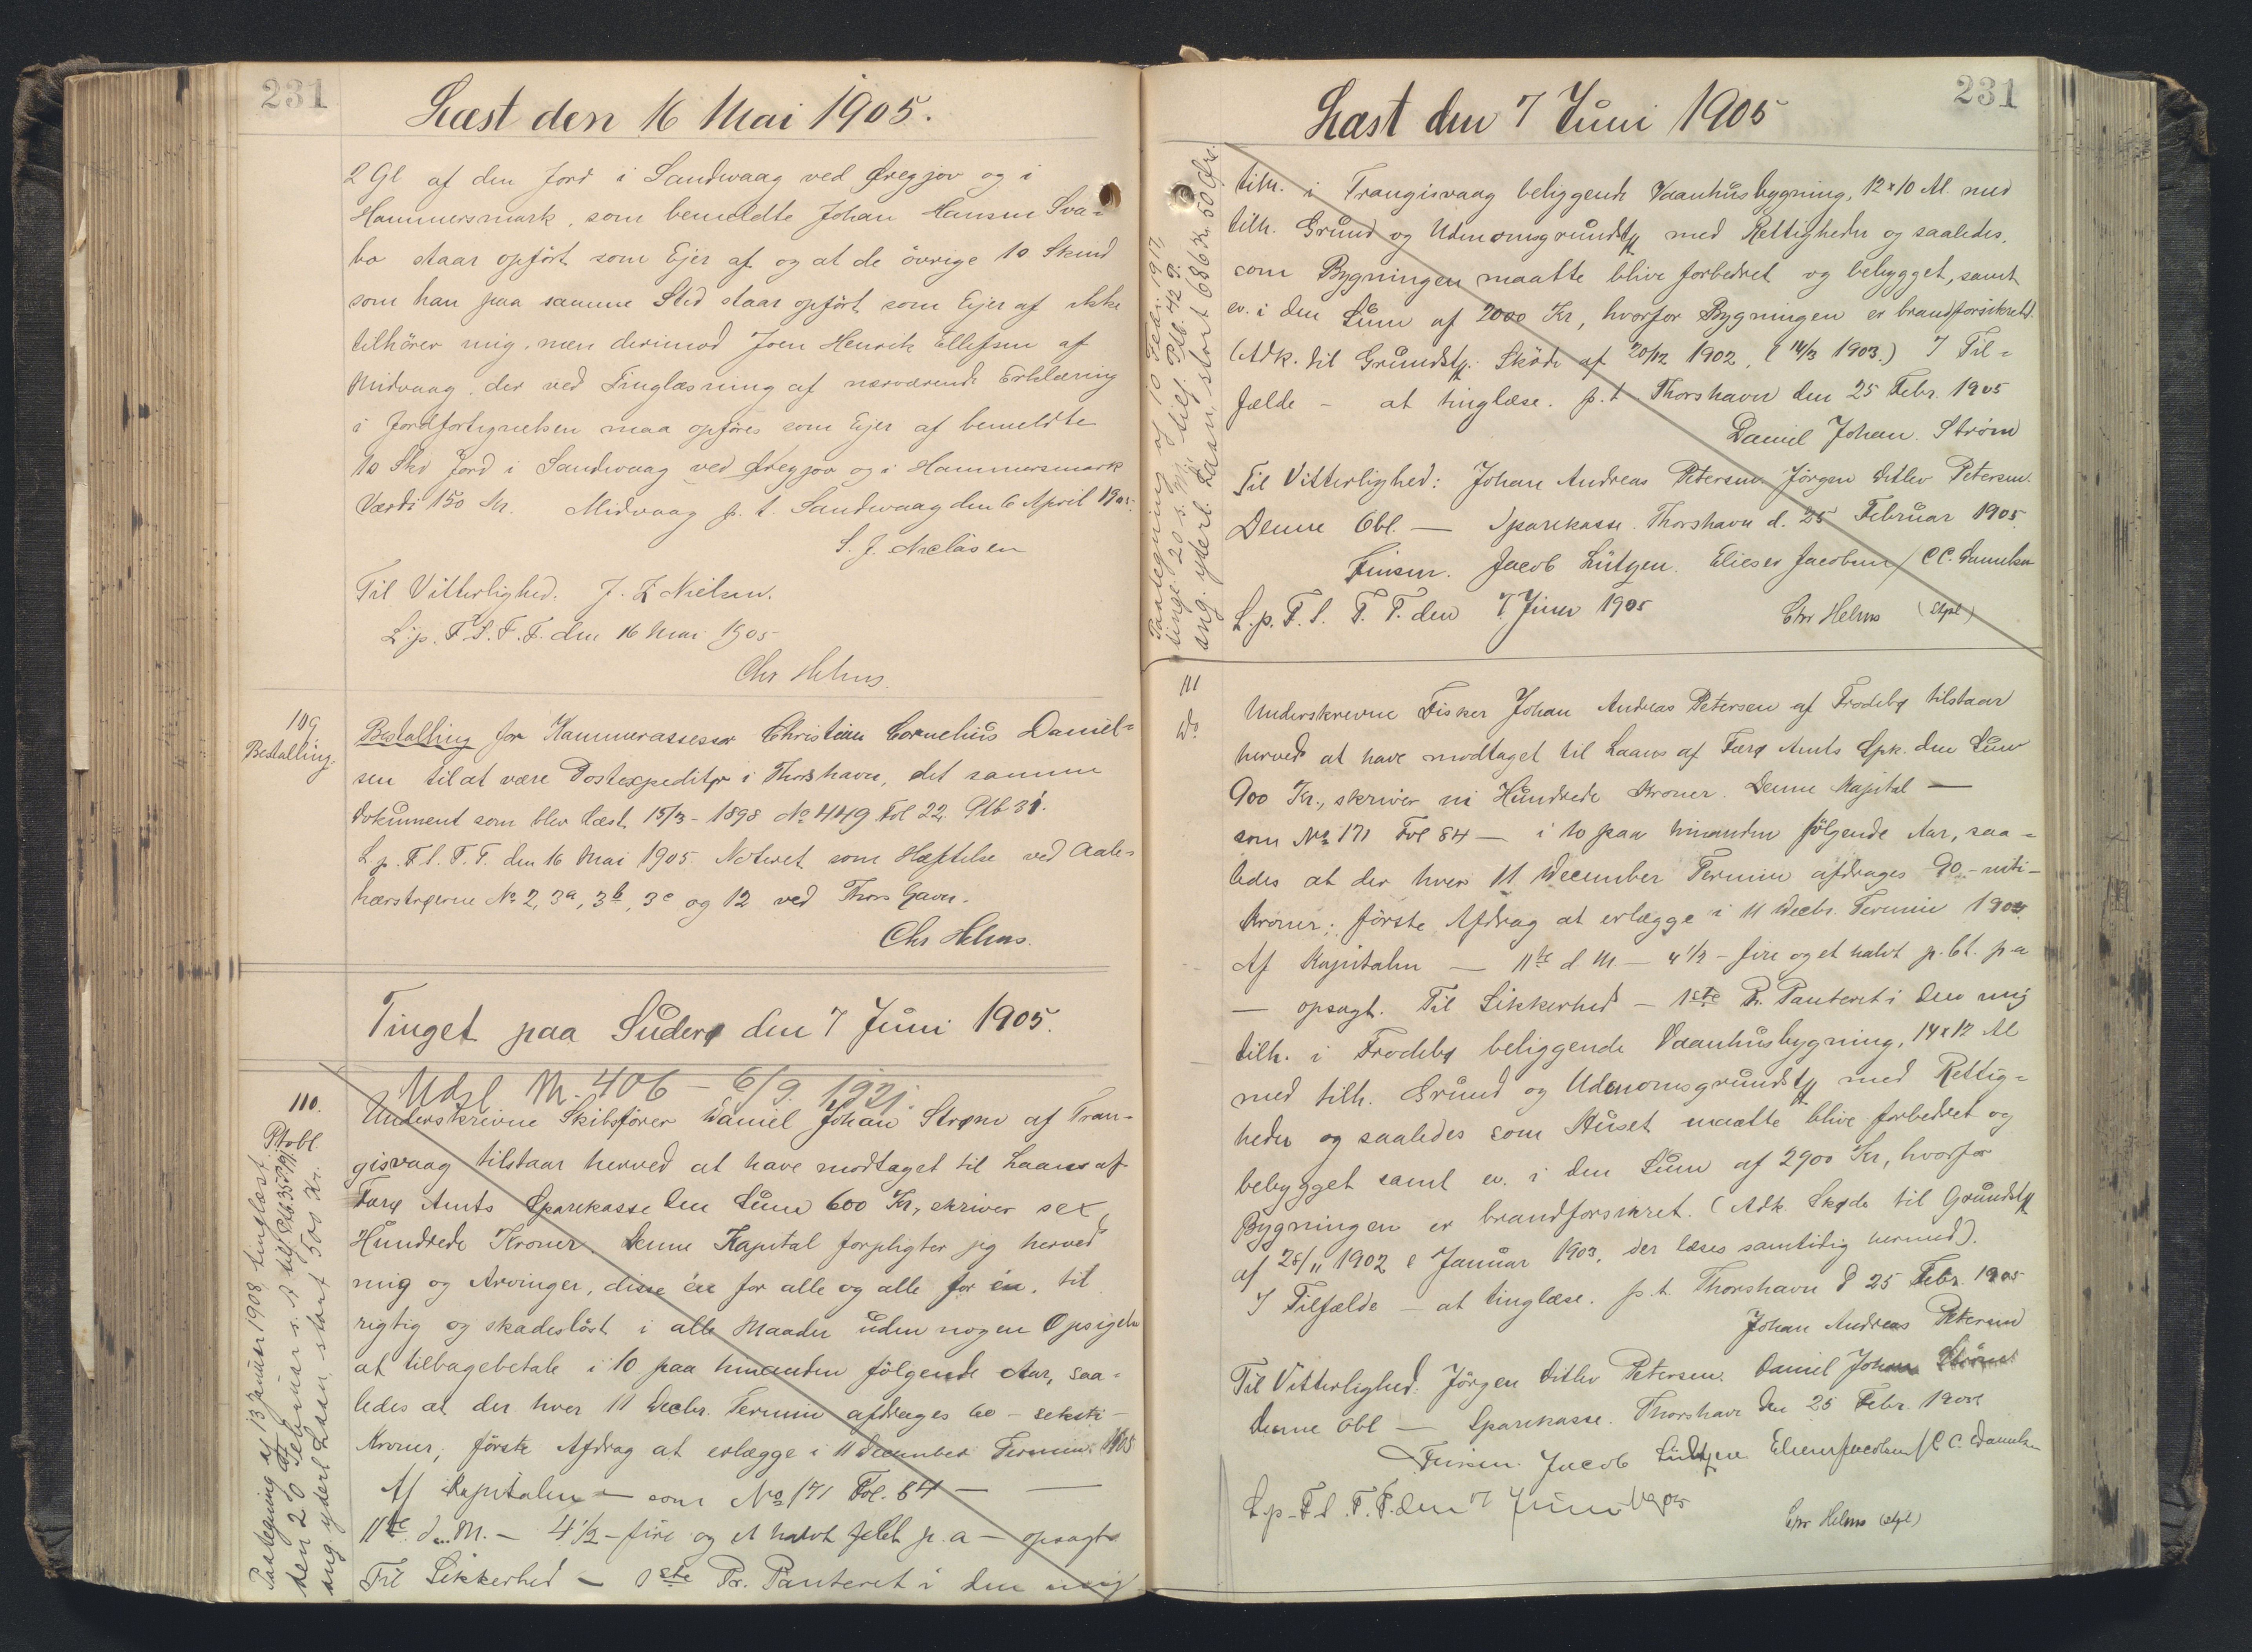 231
Læst den 16 Mai 1905.
2 Gl af den Jord i Sandvaag ved Øregjov og i
Hammersmark, som bemeldte Johan Hansen Sva-
bo staar opført som Ejer af og at de øvrige 10 Skind
som han paa samme Sted staar opført som Ejer af ikke
tilhører mig, men derimod Joen Henrik Ellefsen af
Midvaag, der ved Tinglæsning af nærværende Erklæring
i Jordfortegnelsen maa opføres som Ejer af bemeldte
10 Skd Jord i Sandvaag ved Øregjov og i Hammersmark
Værdi 150 Kr. Midvaag p. t. Sandvaag den 6 April 1905.
S. J. Niclasen
Til Vitterlighed. J. Z Nielsen.
L. p. F. S. F. T. den 16 Mai 1905
Chr Helms.
109.
Bestalling.
Bestalling for Kammerassessor Christian Cornelius Daniel-
sen til at være Postexpeditør i Thorshavn, det samme
Dokument som blev læst 15/3 - 1898 No 449 Fol 22 Ptb 31.
L. p. F. S. F. T. den 16 Mai 1905. Noteret som Hæftelse ved Aale-
hærstrøerne No 2, 3a, 3b, 3c og 12 ved Thorshavn.
Chr Helms.
Tinget paa Suderø den 7 Juni 1905.
Udsl M. 406 - 6/9. 1921.
110.
Ptobl
Underskrevne Skibsfører Daniel Johan Strøm af Tran-
gisvaag tilstaar herved at have modtaget til Laans af
Færø Amts Sparekasse den Sum 600 Kr, skriver sex
Hundrede Kroner. Denne Kapital forpligter jeg herved
mig og Arvinger, disse én for alle og alle for én, til
rigtig og skadesløst i alle Maader uden nogen Opsigelse
at tilbagebetale i 10 paa hinanden følgende Aar, saa-
ledes at der hver 11 Decbr. Termin afdrages 60 - seksti -
Kroner, første Afdrag at erlægge i 11 December Termin 1905
Af Kapitalen — som No 171 Fol. 84 — —
11te d. M. — 4 1/2 - fire og et halvt pCt p. a — opsagt
Til Sikkerhed — 1ste Pr. Panteret i den mig
Paategning af 13 Januar 1908, tinglæst
den 20 Februar s. A. till Ptb 35
ang. yderl. Laan, stort 500 Kr.
231
Læst den 7 Juni 1905
Paategning af 10 Febr. 1917,
tingl. 20 s. M. till. Ptb. 42 P.
ang. yderl. Laan, stort 686 Kr. 50 Øre.
tilh. i Trangisvaag beliggende Vaanhusbygning, 12 x 10 Al. med
tilh. Grund og Udenomsgrundst. med Rettigheder og saaledes,
som Bygningen maatte blive forbedret og bebygget, samt
ev. i den Sum af 2000 Kr, hvorfor Bygningen er brandforsikret.
(Adk. til Grundst. Skøde af 20/12 1902, l 14/3 1903.) I Til-
fælde — at tinglæse. p. t. Thorshavn den 25 Febr. 1905
Daniel Johan Strøm
Til Vitterlighed: Johan Andreas Petersen Jørgen Ditlev Petersen.
Denne Obl. — Sparekasse. Thorshavn d. 25 Februar 1905
Finsen. Jacob Lützen. Elieser Jacobsen / C C. Danielsen
L. p. F. S. F. T. den 7 Juni 1905
Chr Helms (stpl)
111
Do.
Underskrevne Fisker Johan Andreas Petersen af Frodebø tilstaar
herved at have modtaget til Laans af Færø Amts Spk. den Sum
900 Kr., skriver ni Hundrede Kroner. Denne Kapital —
som No 171 Fol 84 — i 10 paa hinanden følgende Aar, saa-
ledes at der hver 11 December Termin afdrages 90 - niti -
Kroner; første Afdrag at erlægge i 11 Decbr. Termin 1905
Af Kapitalen — 11te d M. — 4 1/2 - fire og et halvt p. Ct. p a
— opsagt. Til Sikkerhed — 1ste Pr. Panteret i den mig
tilh. i Frodebø beliggende Vaanhusbygning, 14 x 12 Al
med tilh. Grund og Udenomsgrundst. med Rettig-
heder og saaledes som Huset maatte blive forbedret og
bebygget samt ev. i den Sum af 2900 Kr, hvorfor
Bygningen er brandforsikret. (Adk. Skøde til Grundst.
af 28/11 1902 l Januar 1903, der læses samtidig hermed).
I Tilfælde — at tinglæse. p. t. Thorshavn d 25 Febr. 1905
Johan Andreas Petersen
Til Vitterlighed: Jørgen Ditlev Petersen. Daniel Johan Strøm
Denne Obl — Sparekasse. Thorshavn den 25 Febr. 1905
Finsen. Jacob Lützen Elieser Jacobsen / C C. Danielsen
L. p. F. S. F. T. den 7 Juni 1905
Chr Helms (stpl)